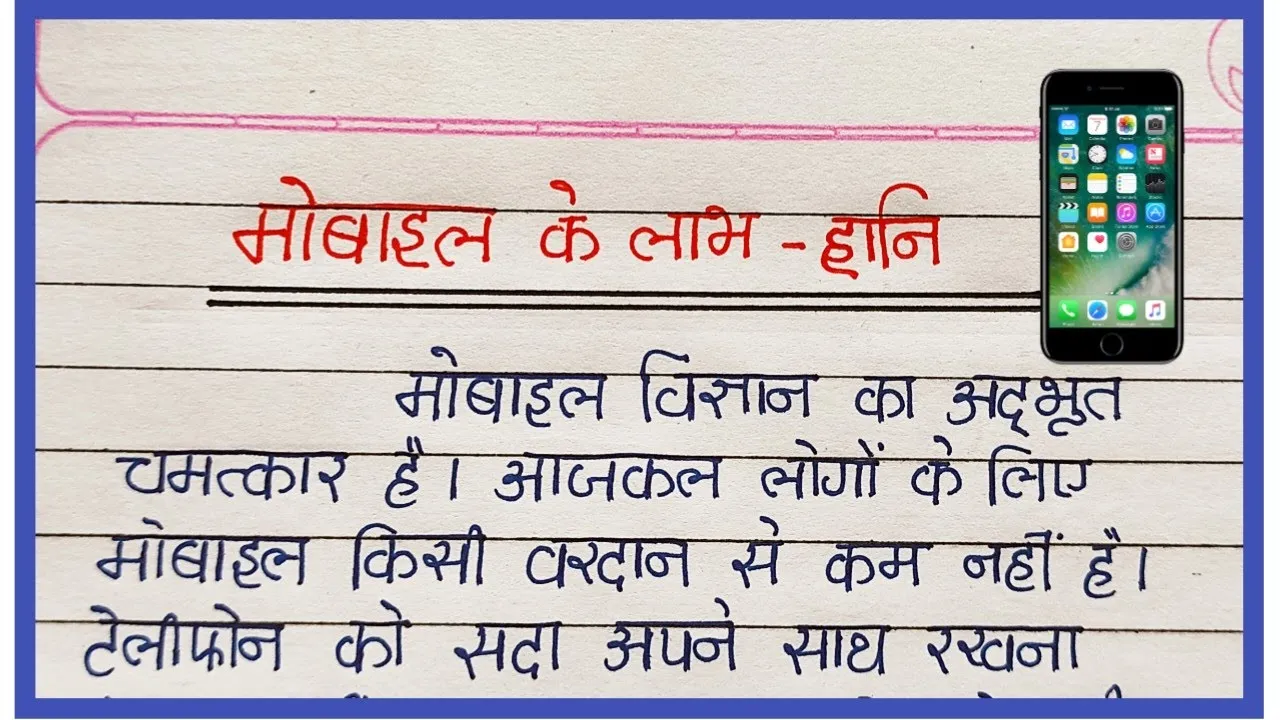 मोबाइल के लाभ - हानि
मोबाइल विज्ञान का अद्भूत
चमत्कार है। आजकल लोगों के लिए
मोबाइल किसी वरदान से कम नहीं है।
टेलीफोन को सदा अपने साथ रखना